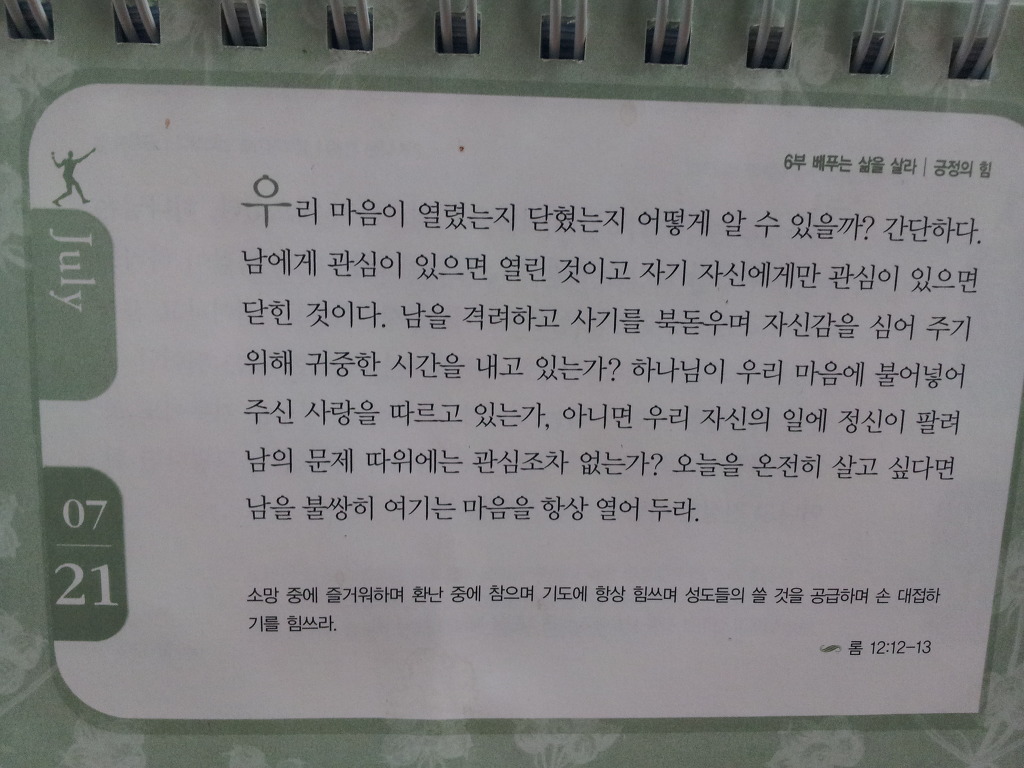 6부 베푸는 삶을 살라 | 긍정의 힘
우리 마음이 열렸는지 닫혔는지 어떻게 알 수 있을까? 간단하다.
남에게 관심이 있으면 열린 것이고 자기 자신에게만 관심이 있으면
닫힌 것이다. 남을 격려하고 사기를 북돋우며 자신감을 심어 주기
위해 귀중한 시간을 내고 있는가? 하나님이 우리 마음에 불어넣어
주신 사랑을 따르고 있는가, 아니면 우리 자신의 일에 정신이 팔려
남의 문제 따위에는 관심조차 없는가? 오늘을 온전히 살고 싶다면
남을 불쌍히 여기는 마음을 항상 열어 두라.
소망 중에 즐거워하며 환난 중에 참으며 기도에 항상 힘쓰며 성도들의 쓸 것을 공급하며 손 대접하
기를 힘쓰라.
롬 12:12-13
July
07
21